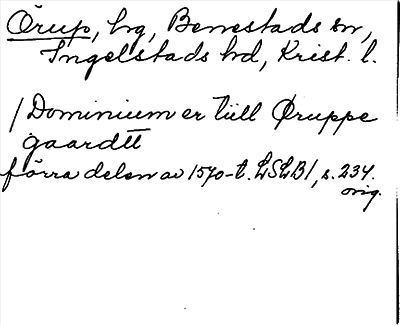 Örup, hg, Benestads sn,
Ingelstads hd, Krist. l.
/Dominium er till Øruppe
gaardtt
förra delen av 1570-t. LSLB1, s. 234.
orig.